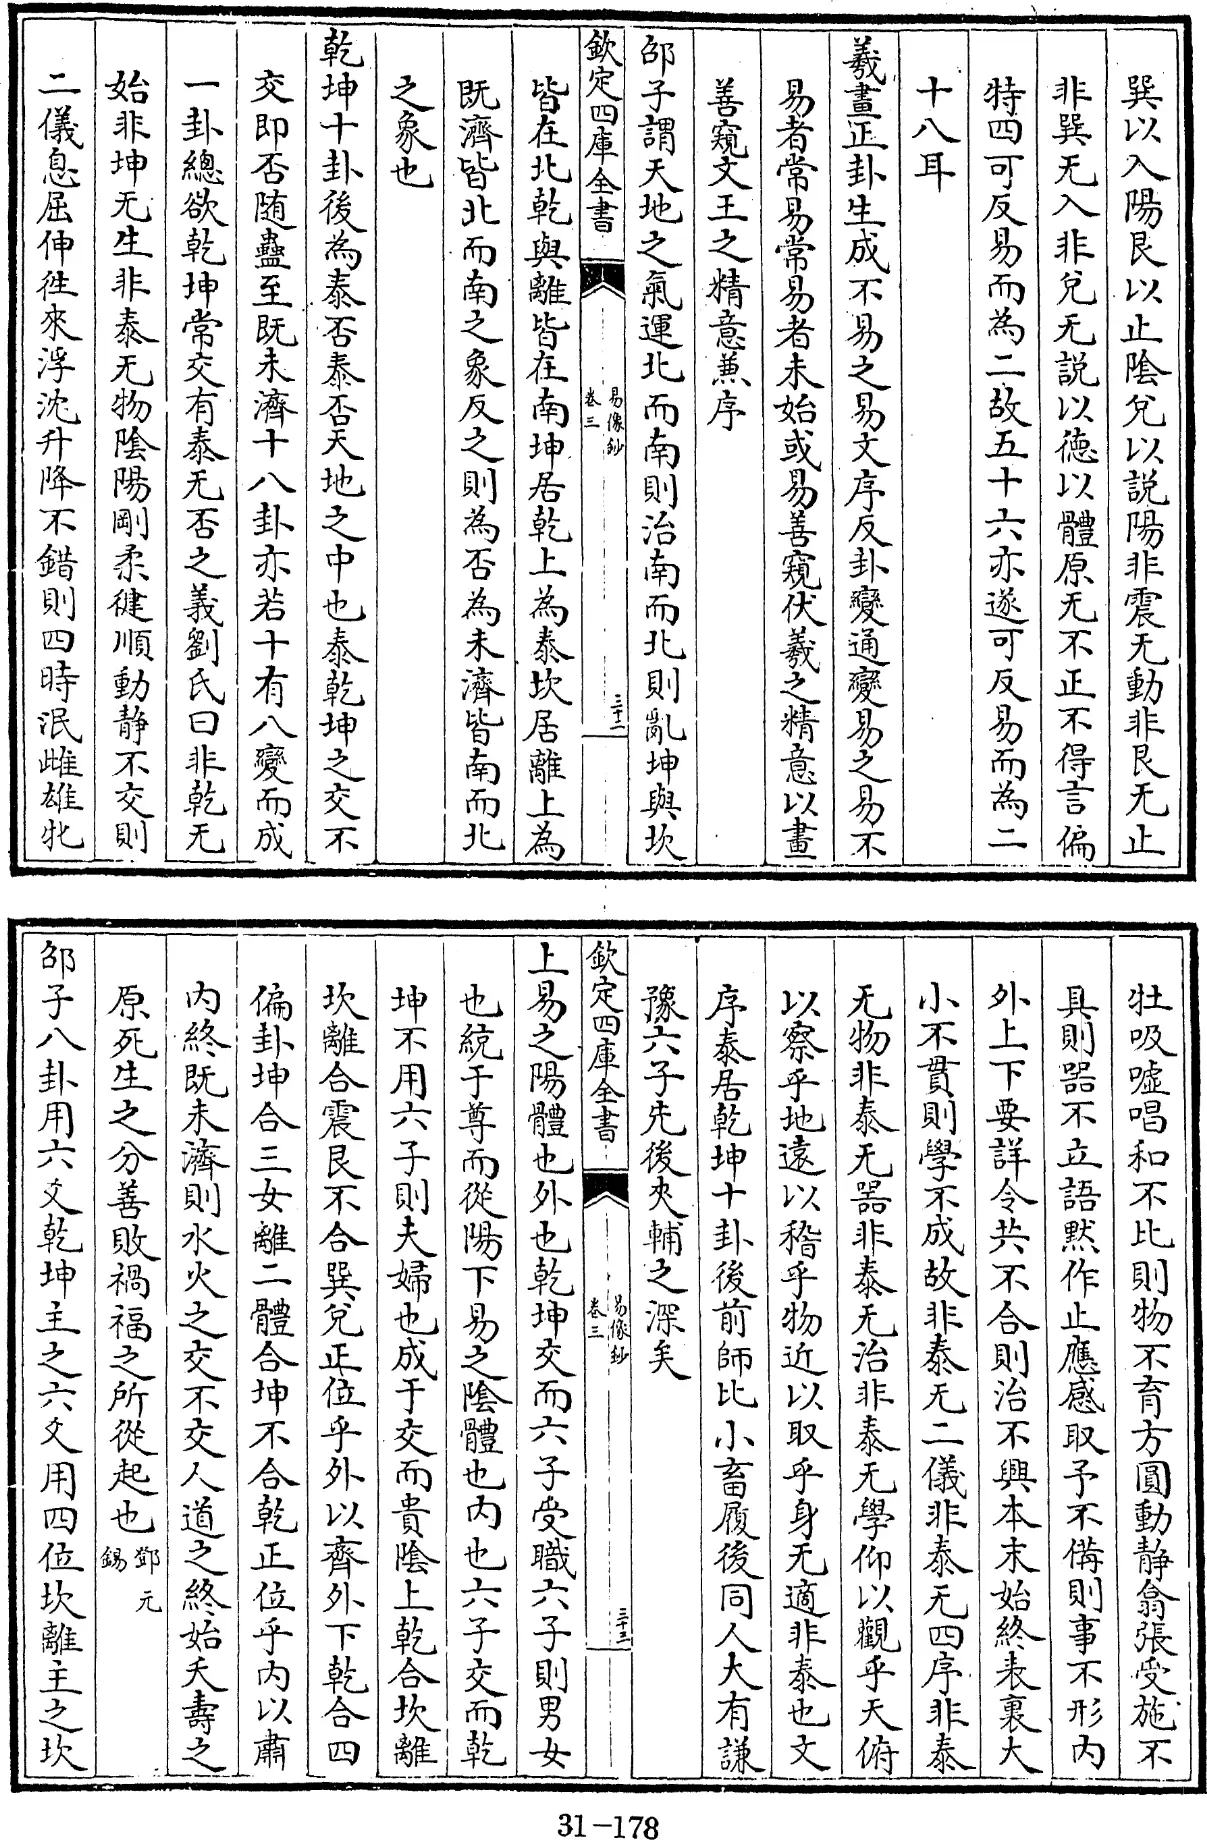 巽以入陽艮以止陰兌以説陽非震无動非艮无止
非巽无入非兌无説以德以體原无不正不得言偏
特四可反易而為二故五十六亦遂可反易而為二
十八耳
羲畫正卦生成不易之易文序反卦變通變易之易不
易者常易常易者未始或易善窺伏羲之精意以畫
善窺文王之精意兼序
邵子謂天地之氣運北而南則治南而北則亂坤與坎
欽定四庫全書
易像鈔
卷三
三十二
皆在北乾與離皆在南坤居乾上為泰坎居離上為
既濟皆北而南之象反之則為否為未濟皆南而北
之象也
乾坤十卦後為泰否泰否天地之中也泰乾坤之交不
交即否随蠱至既未濟十八卦亦若十有八變而成
一卦總欲乾坤常交有泰无否之義劉氏曰非乾无
始非坤无生非泰无物陰陽剛柔健順動静不交則
二儀息屈伸徃來浮沈升降不錯則四時泯雌雄牝
牡吸嘘唱和不比則物不育方圓動静翕張受施不
具則器不立語黙作止應感取予不備則事不形内
外上下要詳令共不合則治不興本末始終表裏大
小不貫則學不成故非泰无二儀非泰无四序非泰
无物非泰无器非泰无治非泰无學仰以觀乎天俯
以察乎地遠以稽乎物近以取乎身无適非泰也文
序泰居乾坤十卦後前師比小畜履後同人大有謙
豫六子先後夾輔之深矣
欽定四庫全書
易像鈔
卷三
三十三
上易之陽體也外也乾坤交而六子受職六子則男女
也統于尊而從陽下易之陰體也内也六子交而乾
坤不用六子則夫婦也成于交而貴陰上乾合坎離
坎離合震艮不合巽兌正位乎外以齊外下乾合四
偏卦坤合三女離二體合坤不合乾正位乎内以肅
内終既未濟則水火之交不交人道之終始夭壽之
原死生之分善敗禍福之所從起也鄧元錫
邵子八卦用六爻乾坤主之六爻用四位坎離主之坎
31-178